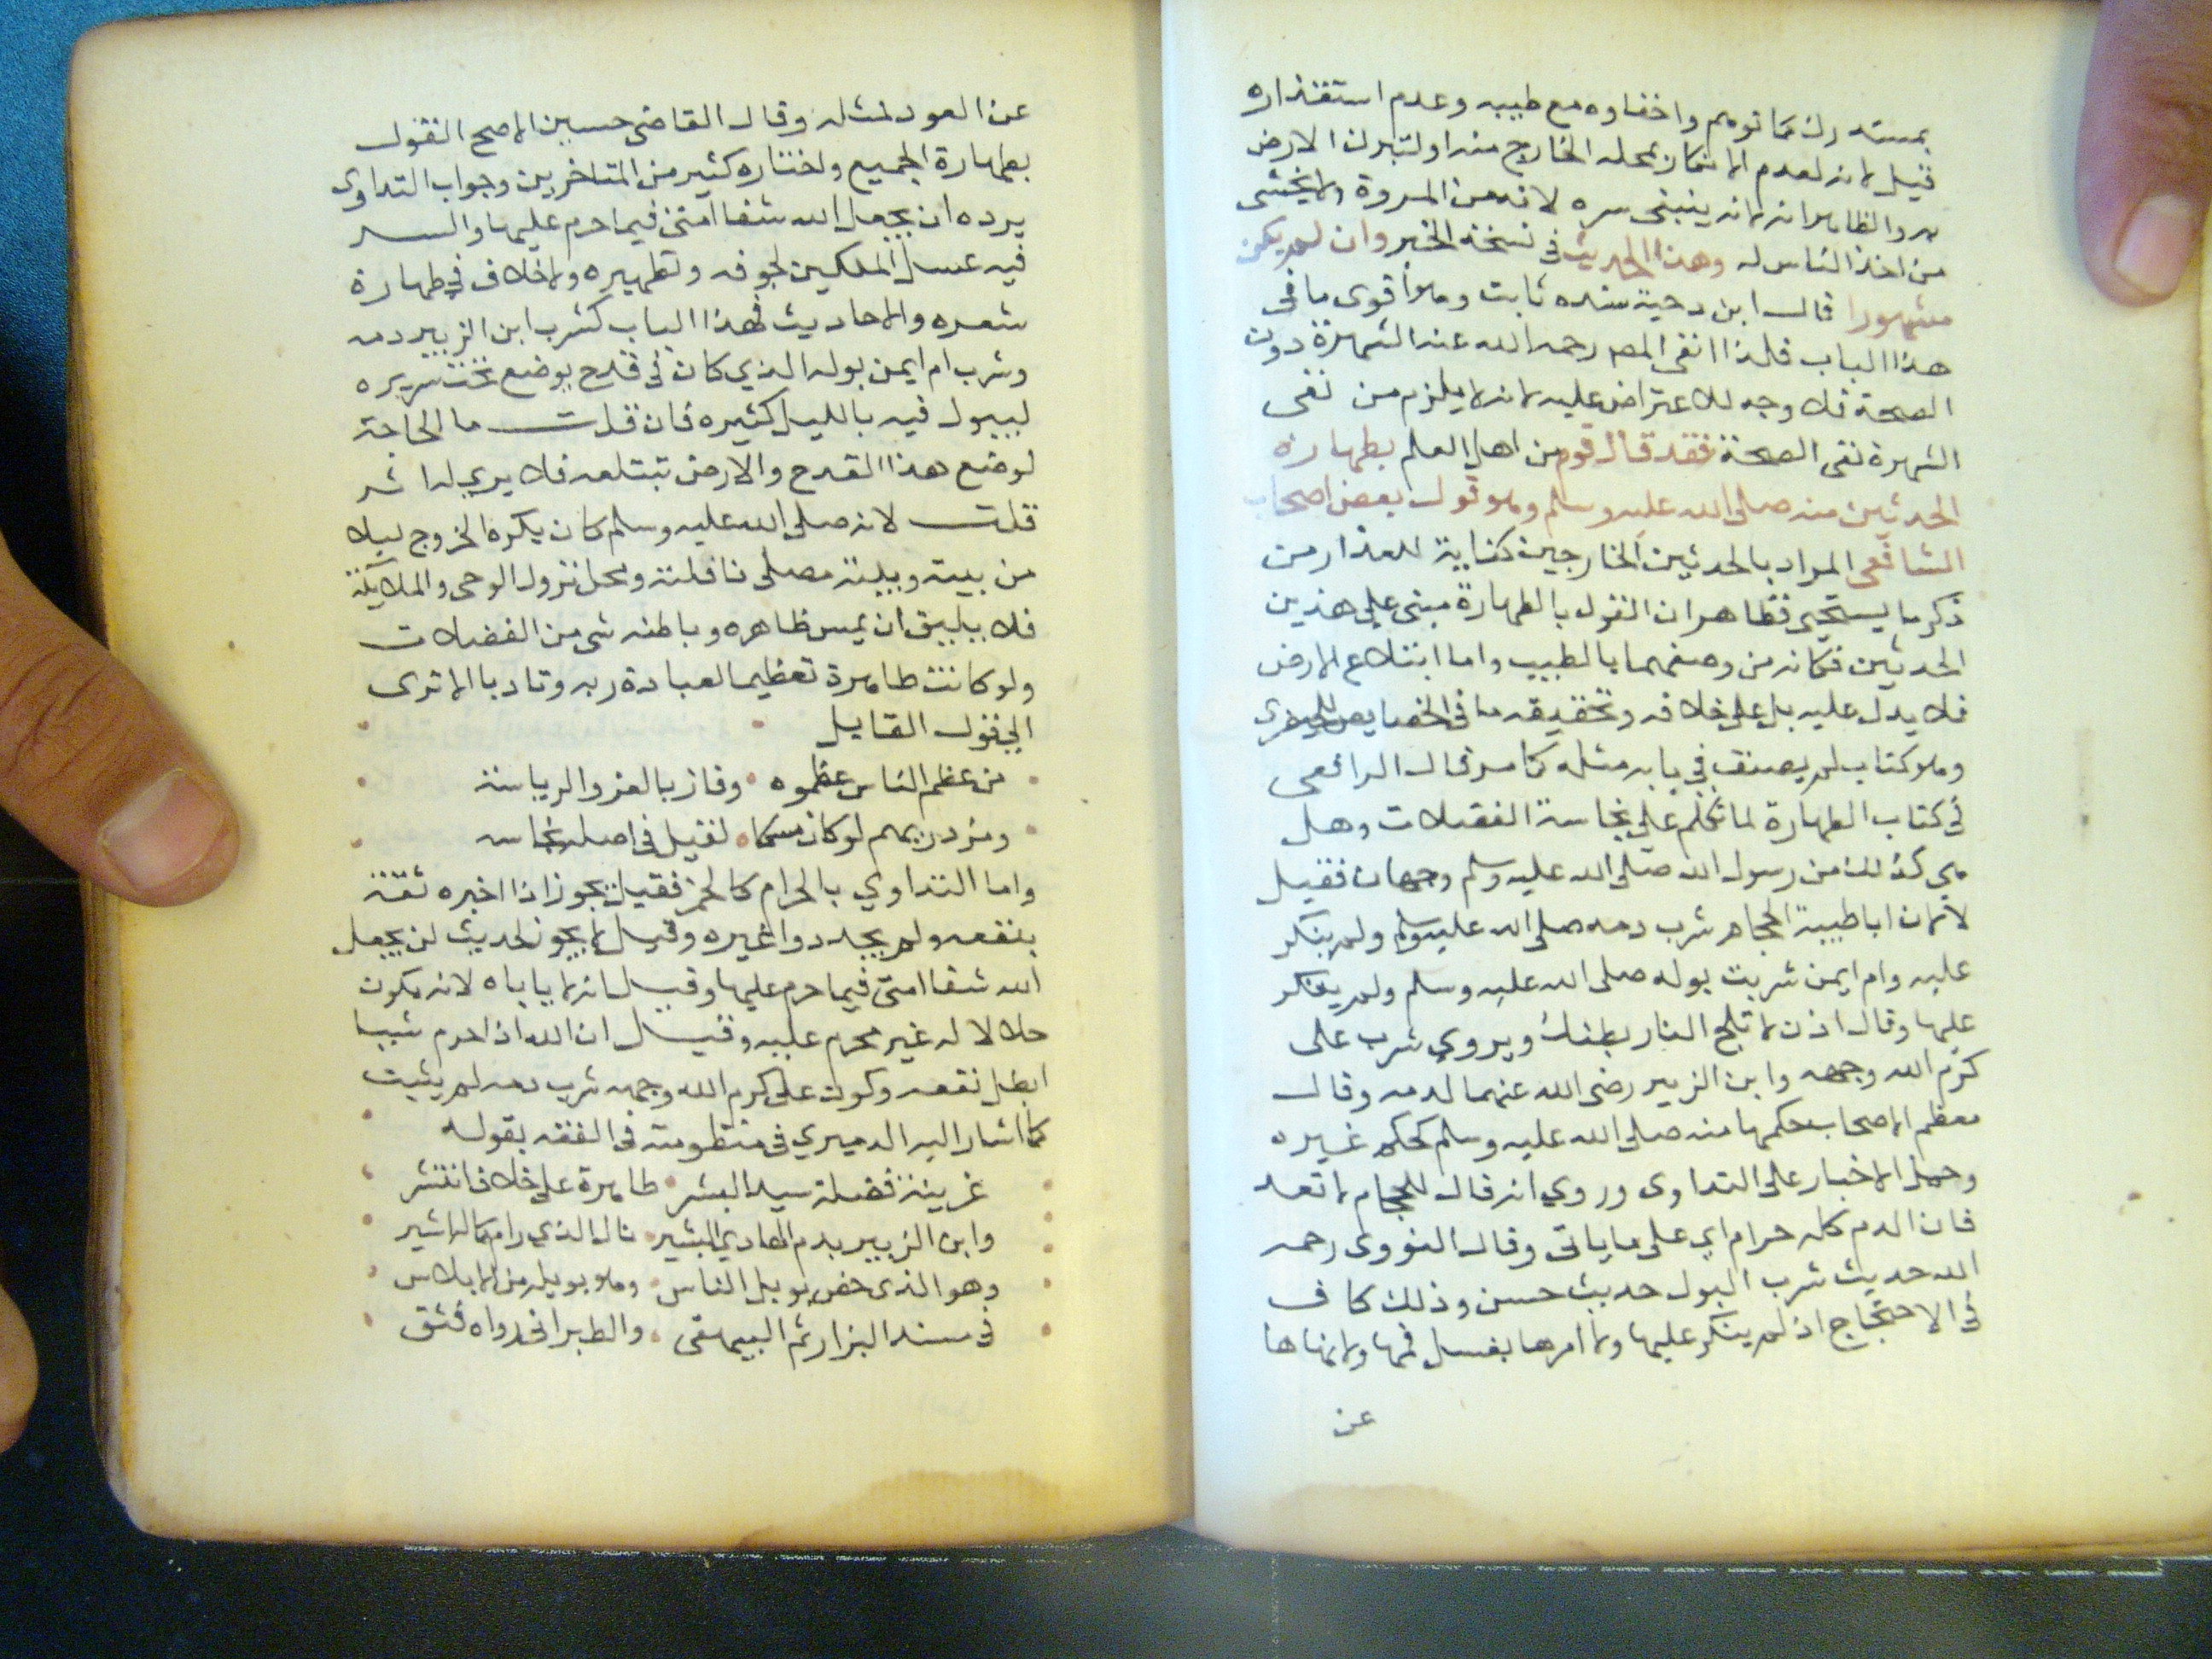 بمستدرك كما توهم واخفاوه مع طيبه وعدم استقذاره
قيل لانه لعدم الامكان بمحله الخارج منه اولتبرك الارض
به والظاهر انه لانه ينبغي سره لانه من المروة ولا يخشى
من اخذ الناس له وهذا الحديث في نسخة الخبر وان لم يكن
مشهورا قال ابن دحية سنده ثابت وهو اقوى ما في
هذا الباب فلذا انفى المص رحمه الله عنه الشهرة دون
الصحة فلا وجه للاعتراض عليه لانه لا يلزم من نفى
الشهرة نفى الصحة فقد قال قوم من اهل العلم بطهارة
الحدثين منه صلى الله عليه وسلم وهو قول بعض اصحاب
الشافعى المراد بالحدثين الخارجين كناية للعذار من
ذكر ما يستحيى فظاهر ان القول بالطهارة مبنى على هذين
الحدثين فكانه من وصفهما بالطيب واما ابتلاع الارض
فلا يدل عليه بل على خلافه وتحقيقه ما في الخصايص
وهو كتاب لم يصنف في بابه مثله كما مر قال الرافعى
في كتاب الطهارة لما تكلم على نجاسة الفضلات وهل
هي كذلك من رسول الله صلى الله عليه وسلم وجهان فقيل
لا لان ابا طيبة الحجام شرب دمه صلى الله عليه وسلم ولم ينكر
عليه وام ايمن شربت بوله صلى الله عليه وسلم ولم ينكر
عليها وقال اذن لا تلج النار بطنك ويروي شرب على
كرم الله وجهه وابن الزبير رضى الله عنهما لدمه وقال
معظم الاصحاب حكمها منه صلى الله عليه وسلم كحكم غيره
وحمل الاخبار على التداوى وروي انه قال للحجام لا تعد
فان الدم كله حرام اي على ما ياتى وقال النووى رحمه
الله حديث شرب البول حديث حسن وذلك كاف
في الاحتجاج اذ لم ينكر عليها ولا امرها بغسل فمها ولا نهاها
عن
عن العود لمثله وقال القاضى حسين الاصح القول
بطهارة الجميع واختاره كثير من المتاخرين وجواب التداوى
يرده ان يجعل الله شفا امتى فيما حرم عليها والسر
فيه غسل الملكين لجوفه وتطهيره ولا خلاف في طهارة
شعره والاحاديث في هذا الباب كشرب ابن الزبير دمه
وشرب ام ايمن بوله الذي كان في قدح يوضع تحت سريره
ليبول فيه بالليل كثيره فان قلت ما الحاجة
لوضع هذا القدح والارض تبتلعه فلا يري له اثر
قلت لانه صلى الله عليه وسلم كان يكره الخروج ليلا
من بيته وبيته مصلى نافلته ومحل نزول الوحى والملايكة
فلا يليق ان يمس ظاهره وباطنه شى من الفضلات
ولو كانت طاهرة تعظيما لعبادة ربه وتادبا الا ترى
الي قول القايل
من عظم الناس عظموه وفاز بالعز والرياسة
ومزدر بهم لو كان مسكا لقيل في اصله نجاسه
واما التداوي بالحرام كالخمر فقيل يجوز اذا اخبره ثقة
بنفعه ولم يجد دوا غيره وقيل لا يجوز لحديث لن يجعل
الله شفا امتى فيما حرم عليها وقيل انه لا ياباه لانه يكون
حلالا له غير محرم عليه وقيل ان الله اذا حرم شيئا
ابطل نفعه وكون على كرم الله وجهه شرب دمه لم يثبت
كما اشار اليه الدميري في منظومته في الفقه بقوله
غريبة فضلة سيد البشر طاهرة على خلاف انتشر
وابن الزبير بدم الهادي البشير نال الذي رام كما له اشير
وهو الذى خص بويل الناس وهو بويله من
في مسند البزار ثم البيهقى والطبرانى رواه فثق